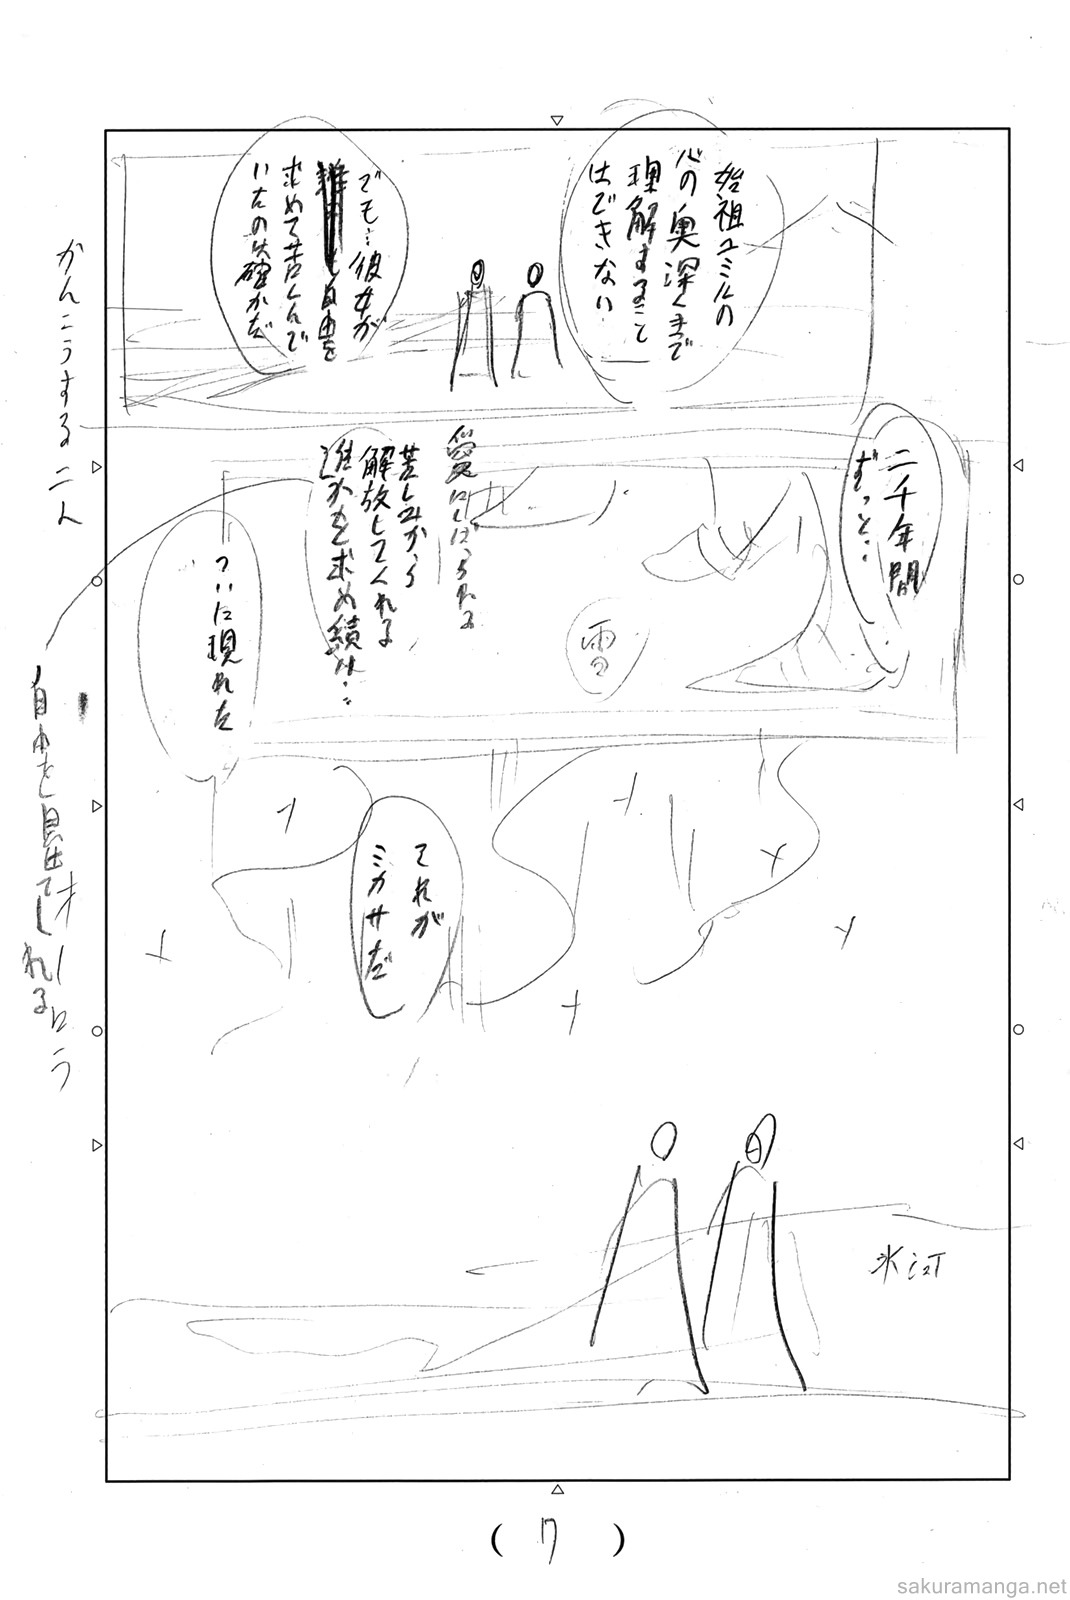 始祖ユミルの
心の奥深くまで
理解すること
はできない
でも…彼女が
自由を
求めて苦しんで
いたのは確かだ
二千年間
ずっと…
愛にしばられる
苦しみから
解放してくれる
誰かを求め続け…
ついに現れた
雪
それが
ミカサだ
氷河
かんこうする二人
自由を見出
オーロラ
(7)
sakuramanga.net